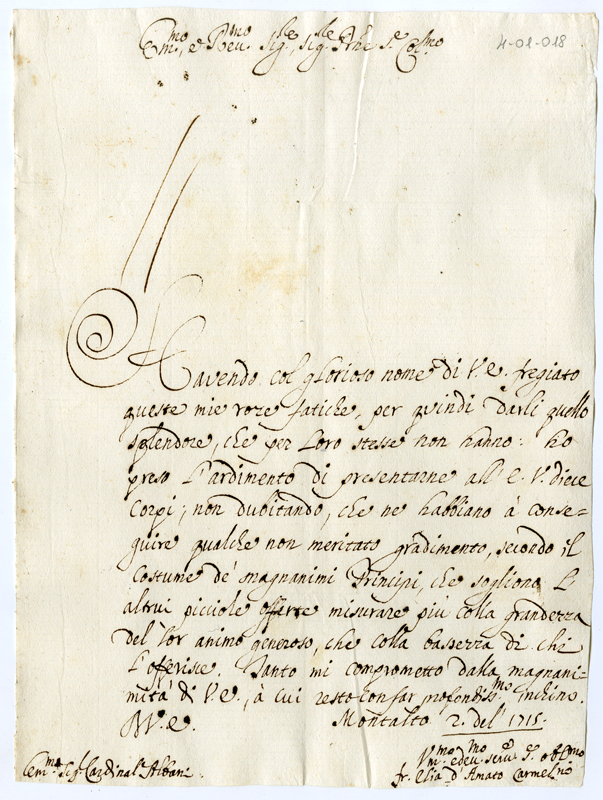 4-01-018
Em.mo, e Reu.mo Sig.re, Sig.re, P.rone S.e Col.mo
Havendo col glorioso nome di V. e. fregiato
queste mie roze fatiche, per quindi darli quello
splendore, che per loro stesse non hanno: ho
preso l'ardimento di presentarne all' e. V. diece
Corpi; non dubitando, che ne habbiano à conse=
guire qualche non meritato gradimento, secondo il
costume de' magnanimi Principi, che sogliono l'
altrui picciole offerte misurare più colla grandezza
del lor animo generoso, che colla bassezza di chi
l'offerisce. Tanto mi comprometto dalla magnani=
mità di V. e., à cui resto con far profondiss.mo inchino.
Di V. e. Montalto 2. del 1715.
V.mo, e deu.mo seru.e S.e obl.mo
Em.mo Sig.r Cardinal.e Albani.
fr. Elia d'Amato Carmel.no